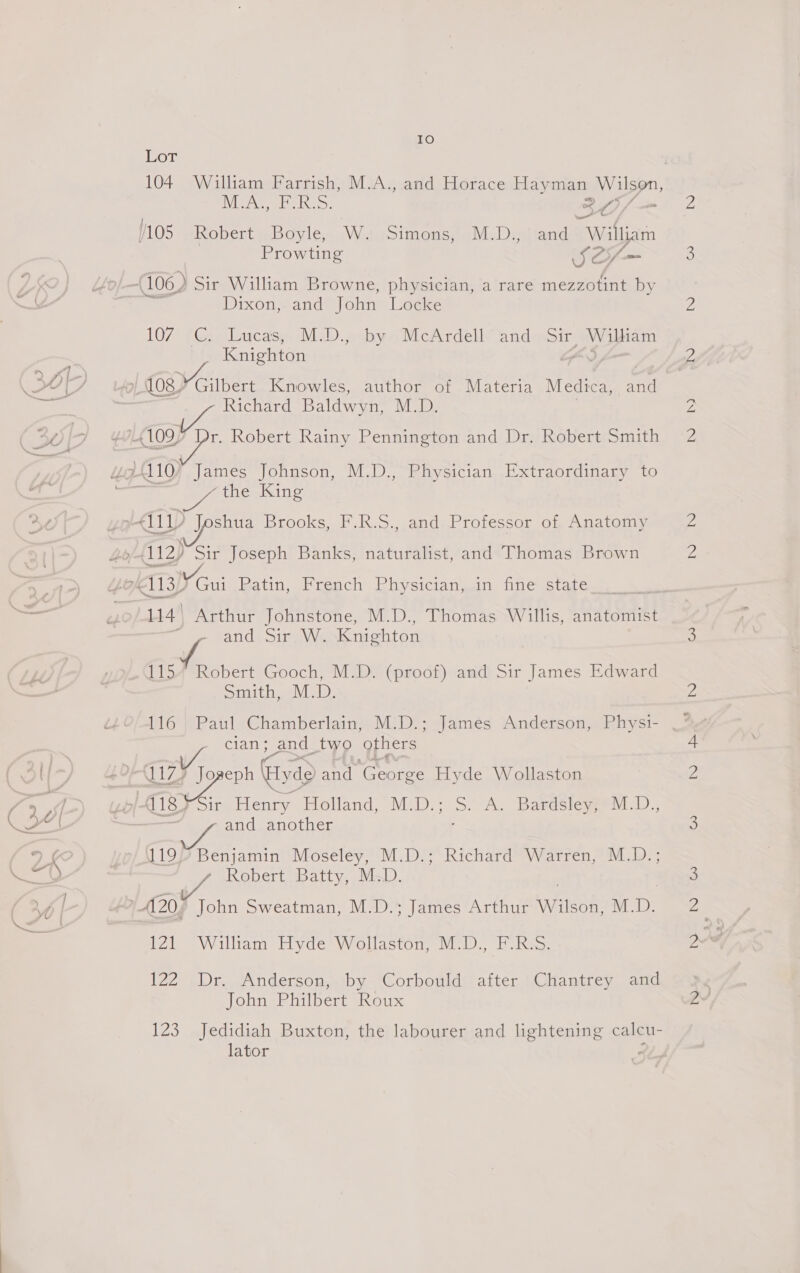 10
Lot
104 William Farrish, M.A., and Horace Hayman Wilson,
M.A., F.R.S. 2
105 Robert Boyle, W. Simons, M.D., and William
Prowting 3
106 Sir William Browne, physician, a rare mezzotint by
Dixon, and John Locke 2
107 C. Lucas, M.D., by McArdell and Sir William
Knighton 2
108 Gilbert Knowles, author of Materia Medica, and
Richard Baldwyn, M.D. 2
109 Dr. Robert Rainy Pennington and Dr. Robert Smith 2
110 James Johnson, M.D., Physician Extraordinary to
the King
111 Joshua Brooks, F.R.S., and Professor of Anatomy 2
112 Sir Joseph Banks, naturalist, and Thomas Brown 2
113 Gui Patin, French Physician, in fine state
114 Arthur Johnstone, M.D., Thomas Willis, anatomist
and Sir W. Knighton 3
115 Robert Gooch, M.D. (proof) and Sir James Edward
Smith, M.D. 2
116 Paul Chamberlain, M.D.; James Anderson, Physi-
cian; and two others 4
117 Joseph Hyde and George Hyde Wollaston 2
118 Sir Henry Holland, M.D.; S. A. Bardsley, M.D.,
and another 3
119 Benjamin Moseley, M.D.; Richard Warren, M.D.;
Robert Batty, M.D. 3
120 John Sweatman, M.D.; James Arthur Wilson, M.D. 2
121 William Hyde Wollaston, M.D., F.R.S. 2
122 Dr. Anderson, by Corbould after Chantrey and
John Philbert Roux 2
123 Jedidiah Buxton, the labourer and lightening calcu-
lator